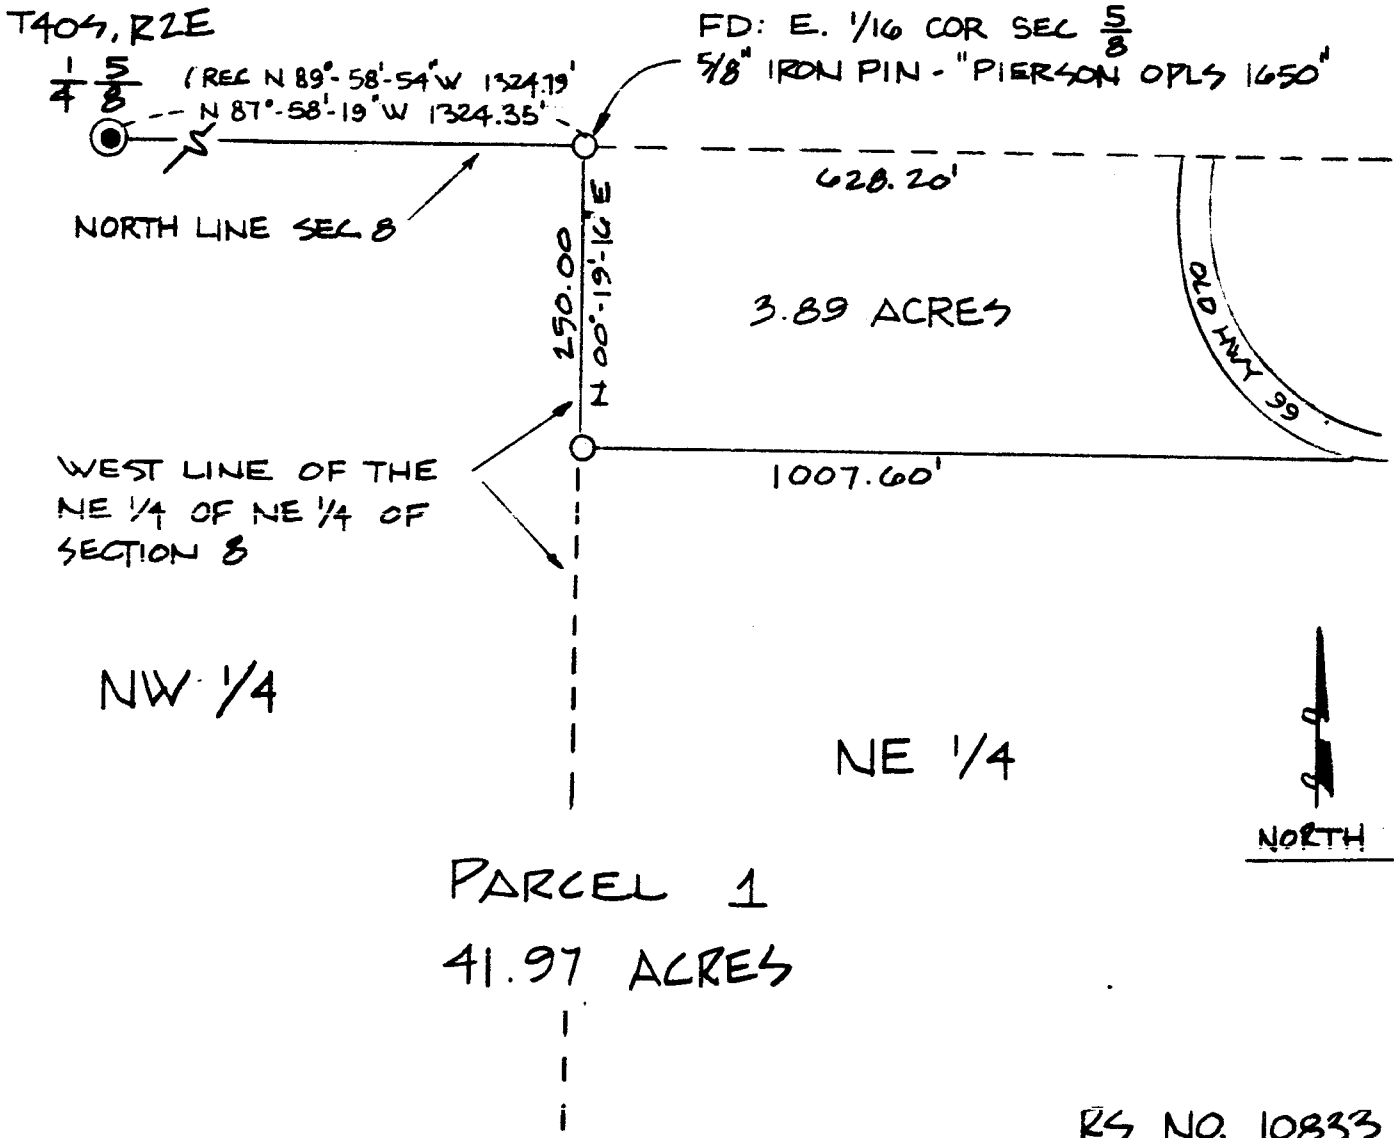 T40S, R2E
1/4 5/8
(REC N 89°-58'-54"W 1324.79'
N 87°-58'-19"W 1324.35'
FD: E. 1/16 COR SEC 5/8
5/8" IRON PIN - "PIERSON OPLS 1650"
628.20'
NORTH LINE SEC 8
250.00
N 00°-19'-16"E
3.89 ACRES
OLD HWY 99
1007.60'
WEST LINE OF THE
NE 1/4 OF NE 1/4 OF
SECTION 8
NW 1/4
NE 1/4
NORTH
PARCEL 1
41.97 ACRES
RS NO. 10833